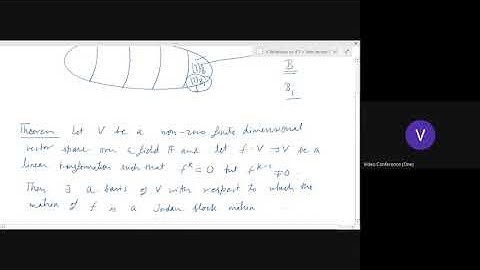 B
B₁
Theorem Let V be a non-zero finite dimensional
vector space over a field F and let f: V → V be a
linear transformation such that fᵏ = 0 but fᵏ⁻¹ ≠ 0.
Then ∃ a basis of V with respect to which the
matrix of f is a Jordan block matrix
V
Video Conference (One)